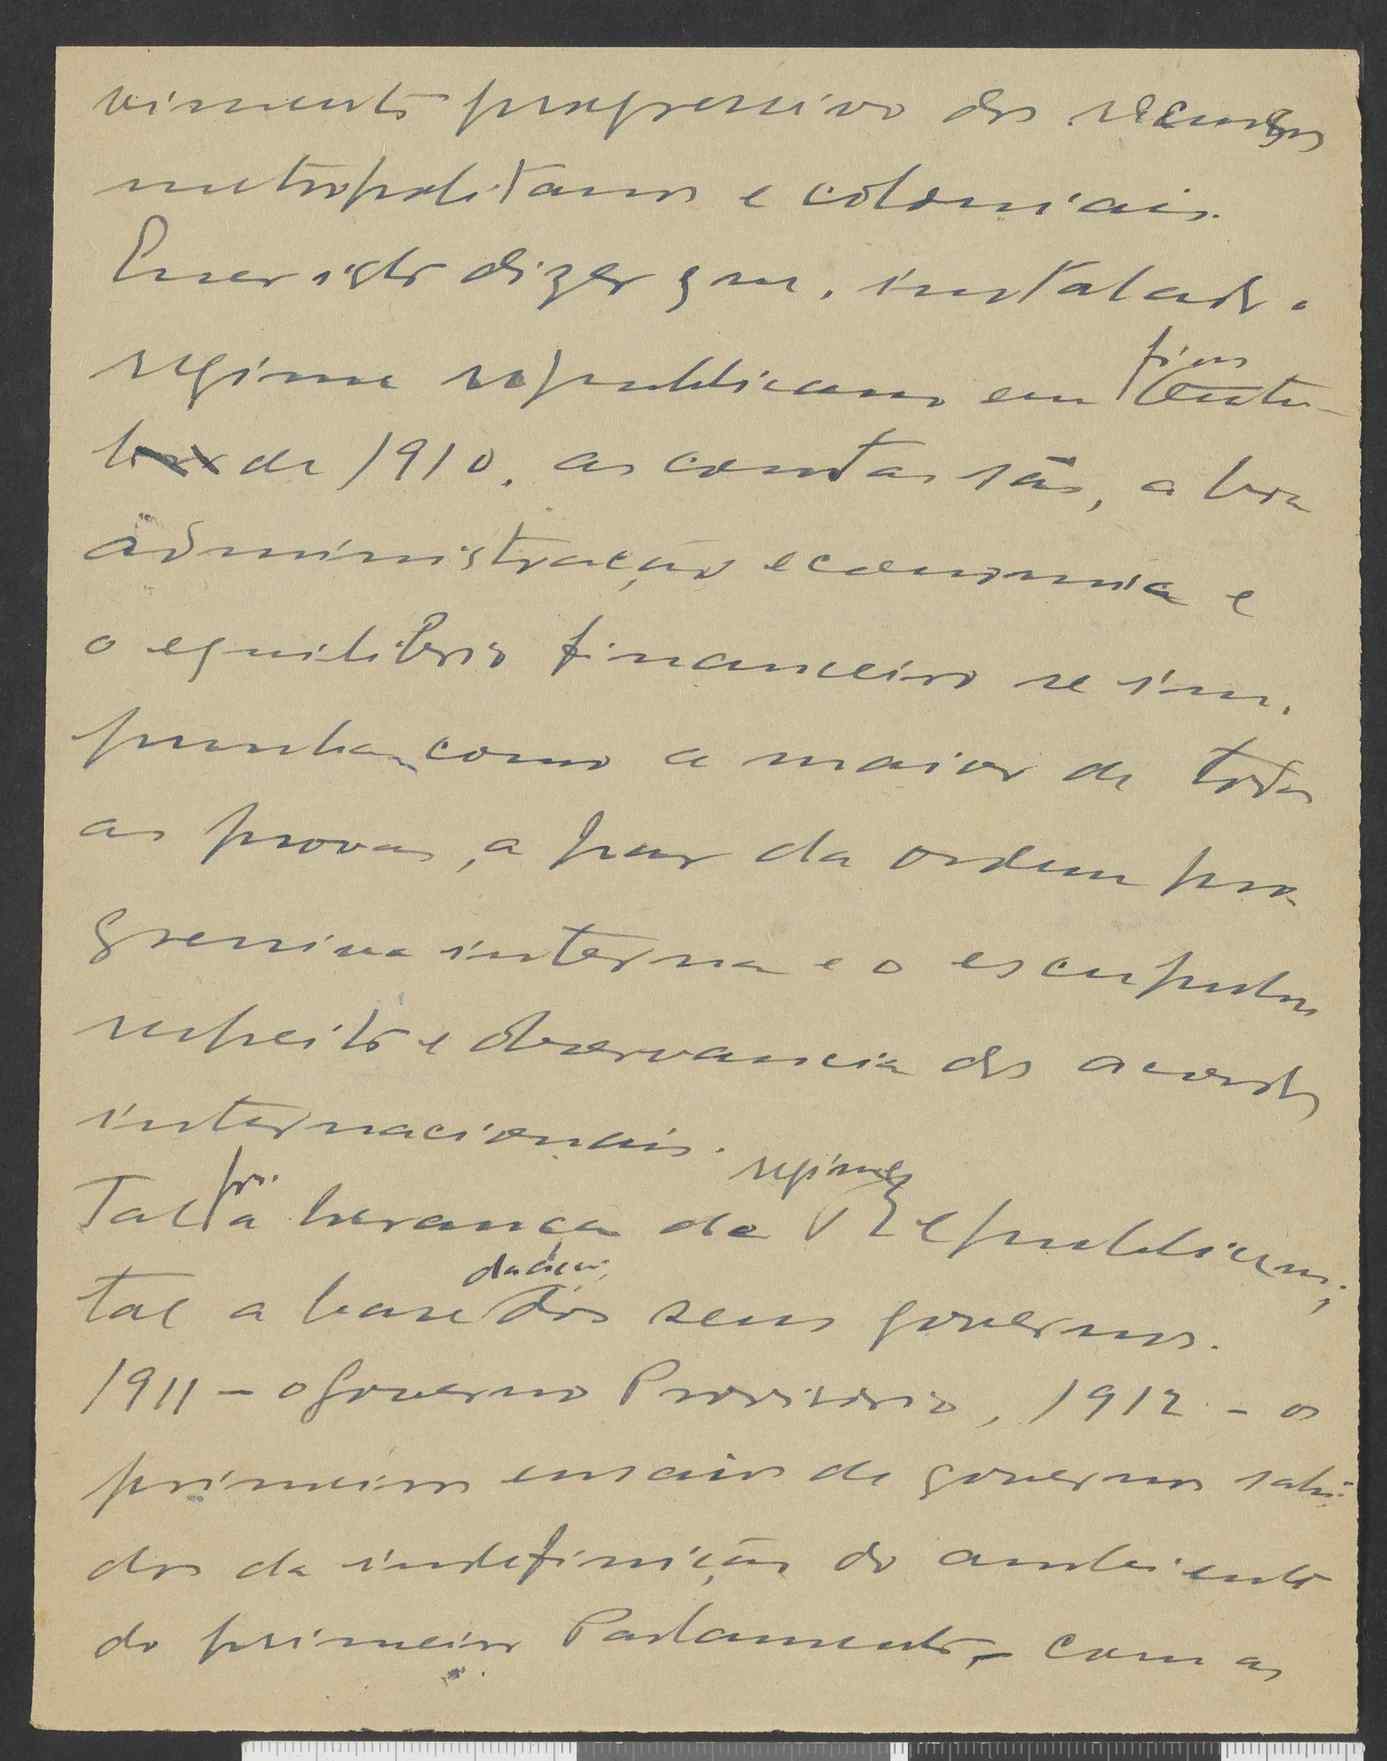 vimento progressivo dos recursos
metropolitanos e coloniais.
Quer isto dizer que, instalado o
regime republicano em fins Outu-
bro de 1910, as contas sãs, a boa
administração economia e
o equilibrio financeiro se im-
punham como a maior de todas
as provas, a par da ordem pro-
gressiva interna e o escrupuloso
respeito e observancia dos acordos
internacionais.
Tal foi a herança do regimen Republicano;
tal a base dos seus governos.
1911 - o Governo Provisorio, 1912 - os
primeiros ensaios de governos sahi-
dos da indefinição do ambiente
do primeiro Parlamento, com as